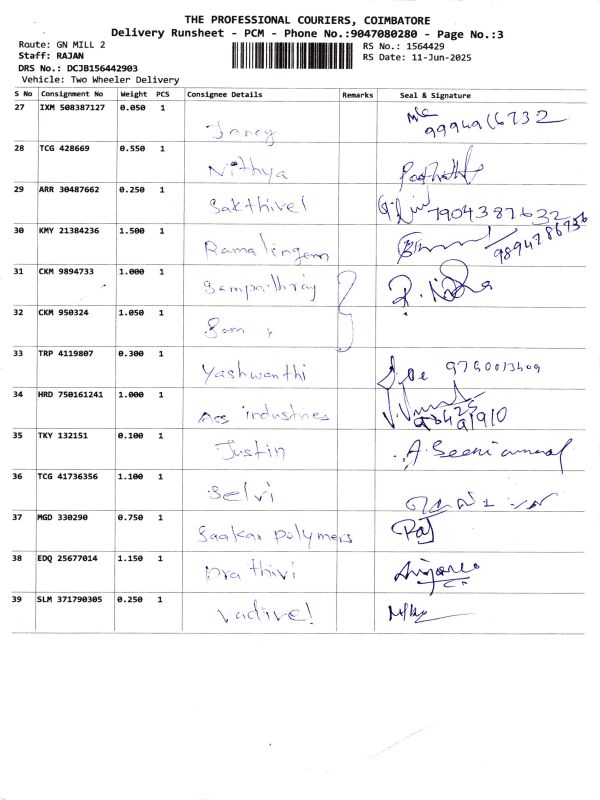 THE PROFESSIONAL COURIERS, COIMBATORE
Delivery Runsheet - PCM - Phone No.:9047080280 - Page No.:3
Route: GN MILL 2
RS No.: 1564429
Staff: RAJAN
RS Date: 11-Jun-2025
DRS No.: DCJB156442903
Vehicle: Two Wheeler Delivery
S No Consignment No Weight PCS Consignee Details Remarks Seal & Signature
27 IXM 508387127 0.050 1
28 TCG 428669 0.550 1 Nithya
29 ARR 30487662 0.250 1 Sakthivel 7904387632
30 KMY 21384236 1.500 1 Ramalingem 9894786756
31 CKM 9894733 1.000 1
32 CKM 950324 1.050 1 Sam
33 TRP 4119807 0.300 1 Yashwanthi
34 HRD 750161241 1.000 1 industries
35 TKY 132151 0.100 1 Justin
36 TCG 41736356 1.100 1 Selvi
37 MGD 330290 0.750 1 Saakar polymers Raj
38 EDQ 25677014 1.150 1
39 SLM 371790305 0.250 1 Vadivel